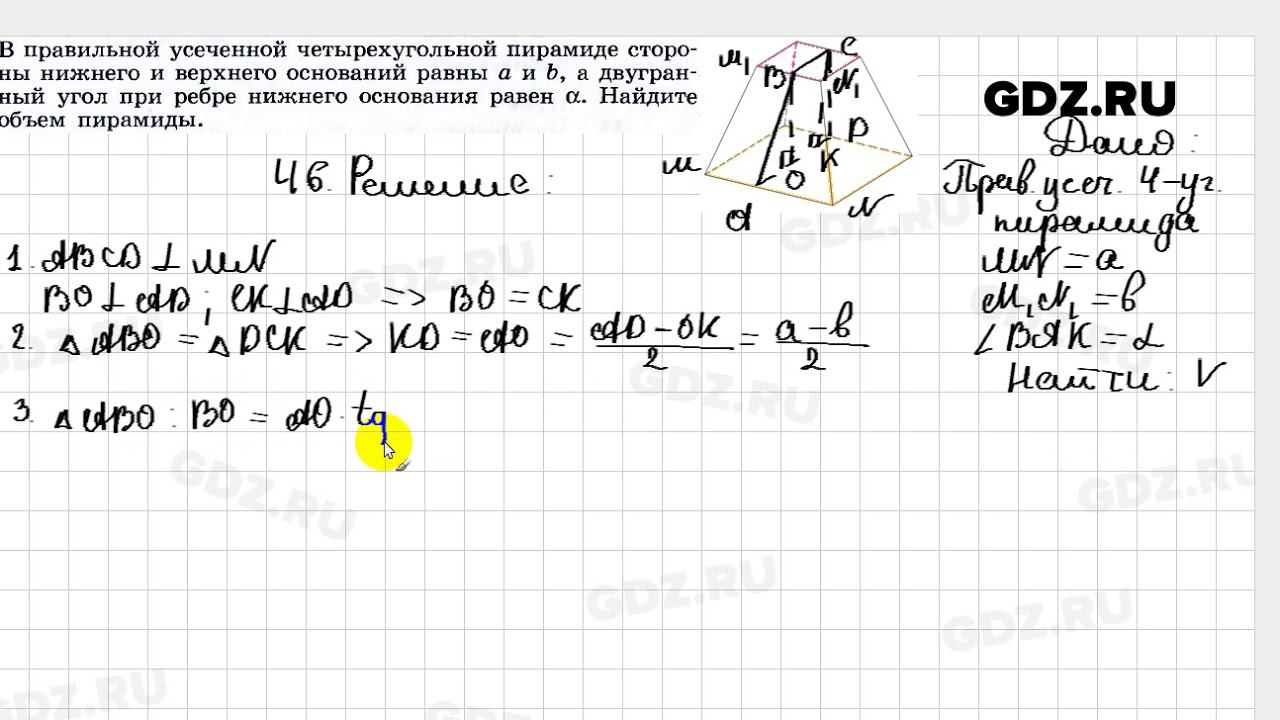 В правильной усеченной четырехугольной пирамиде сторо-
ны нижнего и верхнего оснований равны a и b, а двугран-
ный угол при ребре нижнего основания равен α. Найдите
объем пирамиды.
M₁ B C N₁
M O K D
A N
GDZ.RU
Дано:
Прав. усеч. 4-уг.
пирамида
MN = a
M₁N₁ = b
∠BAK = α
Найти: V
46. Решение:
1. ABCD ⊥ MN
BO ⊥ AD; CK ⊥ AD => BO = CK
2. △ABO = △DCK => KD = AO = (AD – OK)/2 = (a – b)/2
3. △ABO: BO = AO · tg
GDZ.RU
GDZ.RU
GDZ.RU
GDZ.RU
GDZ.RU
GDZ.RU
GDZ.RU
GDZ.RU